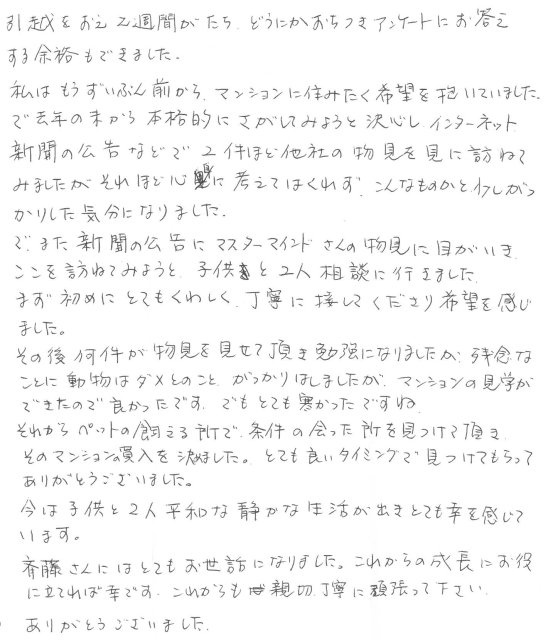 引越をおえ 2週間がたち、どうにかおちつきアンケートにお答え
する余裕もできました.
私はもうずいぶん前から、マンションに住みたく希望を抱いていました.
で去年の末から 本格的にさがしてみようと決心し インターネット
新聞の公告などで 2件ほど他社の物見を見に訪ねて
みましたが それほど心身に考えてはくれず、こんなものかと少しがっ
かりした気分になりました.
で、また新聞の公告に マスターマインドさんの物見に目がいき
ここを訪ねてみようと、子供と2人相談に行きました
まず初めに とてもくわしく、丁寧に接してくださり希望を感じ
ました。
その後何件か物見を見せて頂き勉強になりましたが、残念な
ことに動物はダメとのこと、がっかりはしましたが、マンションの見学が
できたので良かったです。でもとても寒かったですね
それからペットの飼える所で、条件の会った所を見つけて頂き、
そのマンションの買入を決めました。とても良いタイミングで見つけてもらって
ありがとうございました。
今は子供と2人平和な静かな生活が出きとても幸を感じて
います。
斉藤さんにはとてもお世話になりました。これからの成長にお役
に立てれば幸です、これからも 親切、丁寧に頑張って下さい
ありがとうございました.